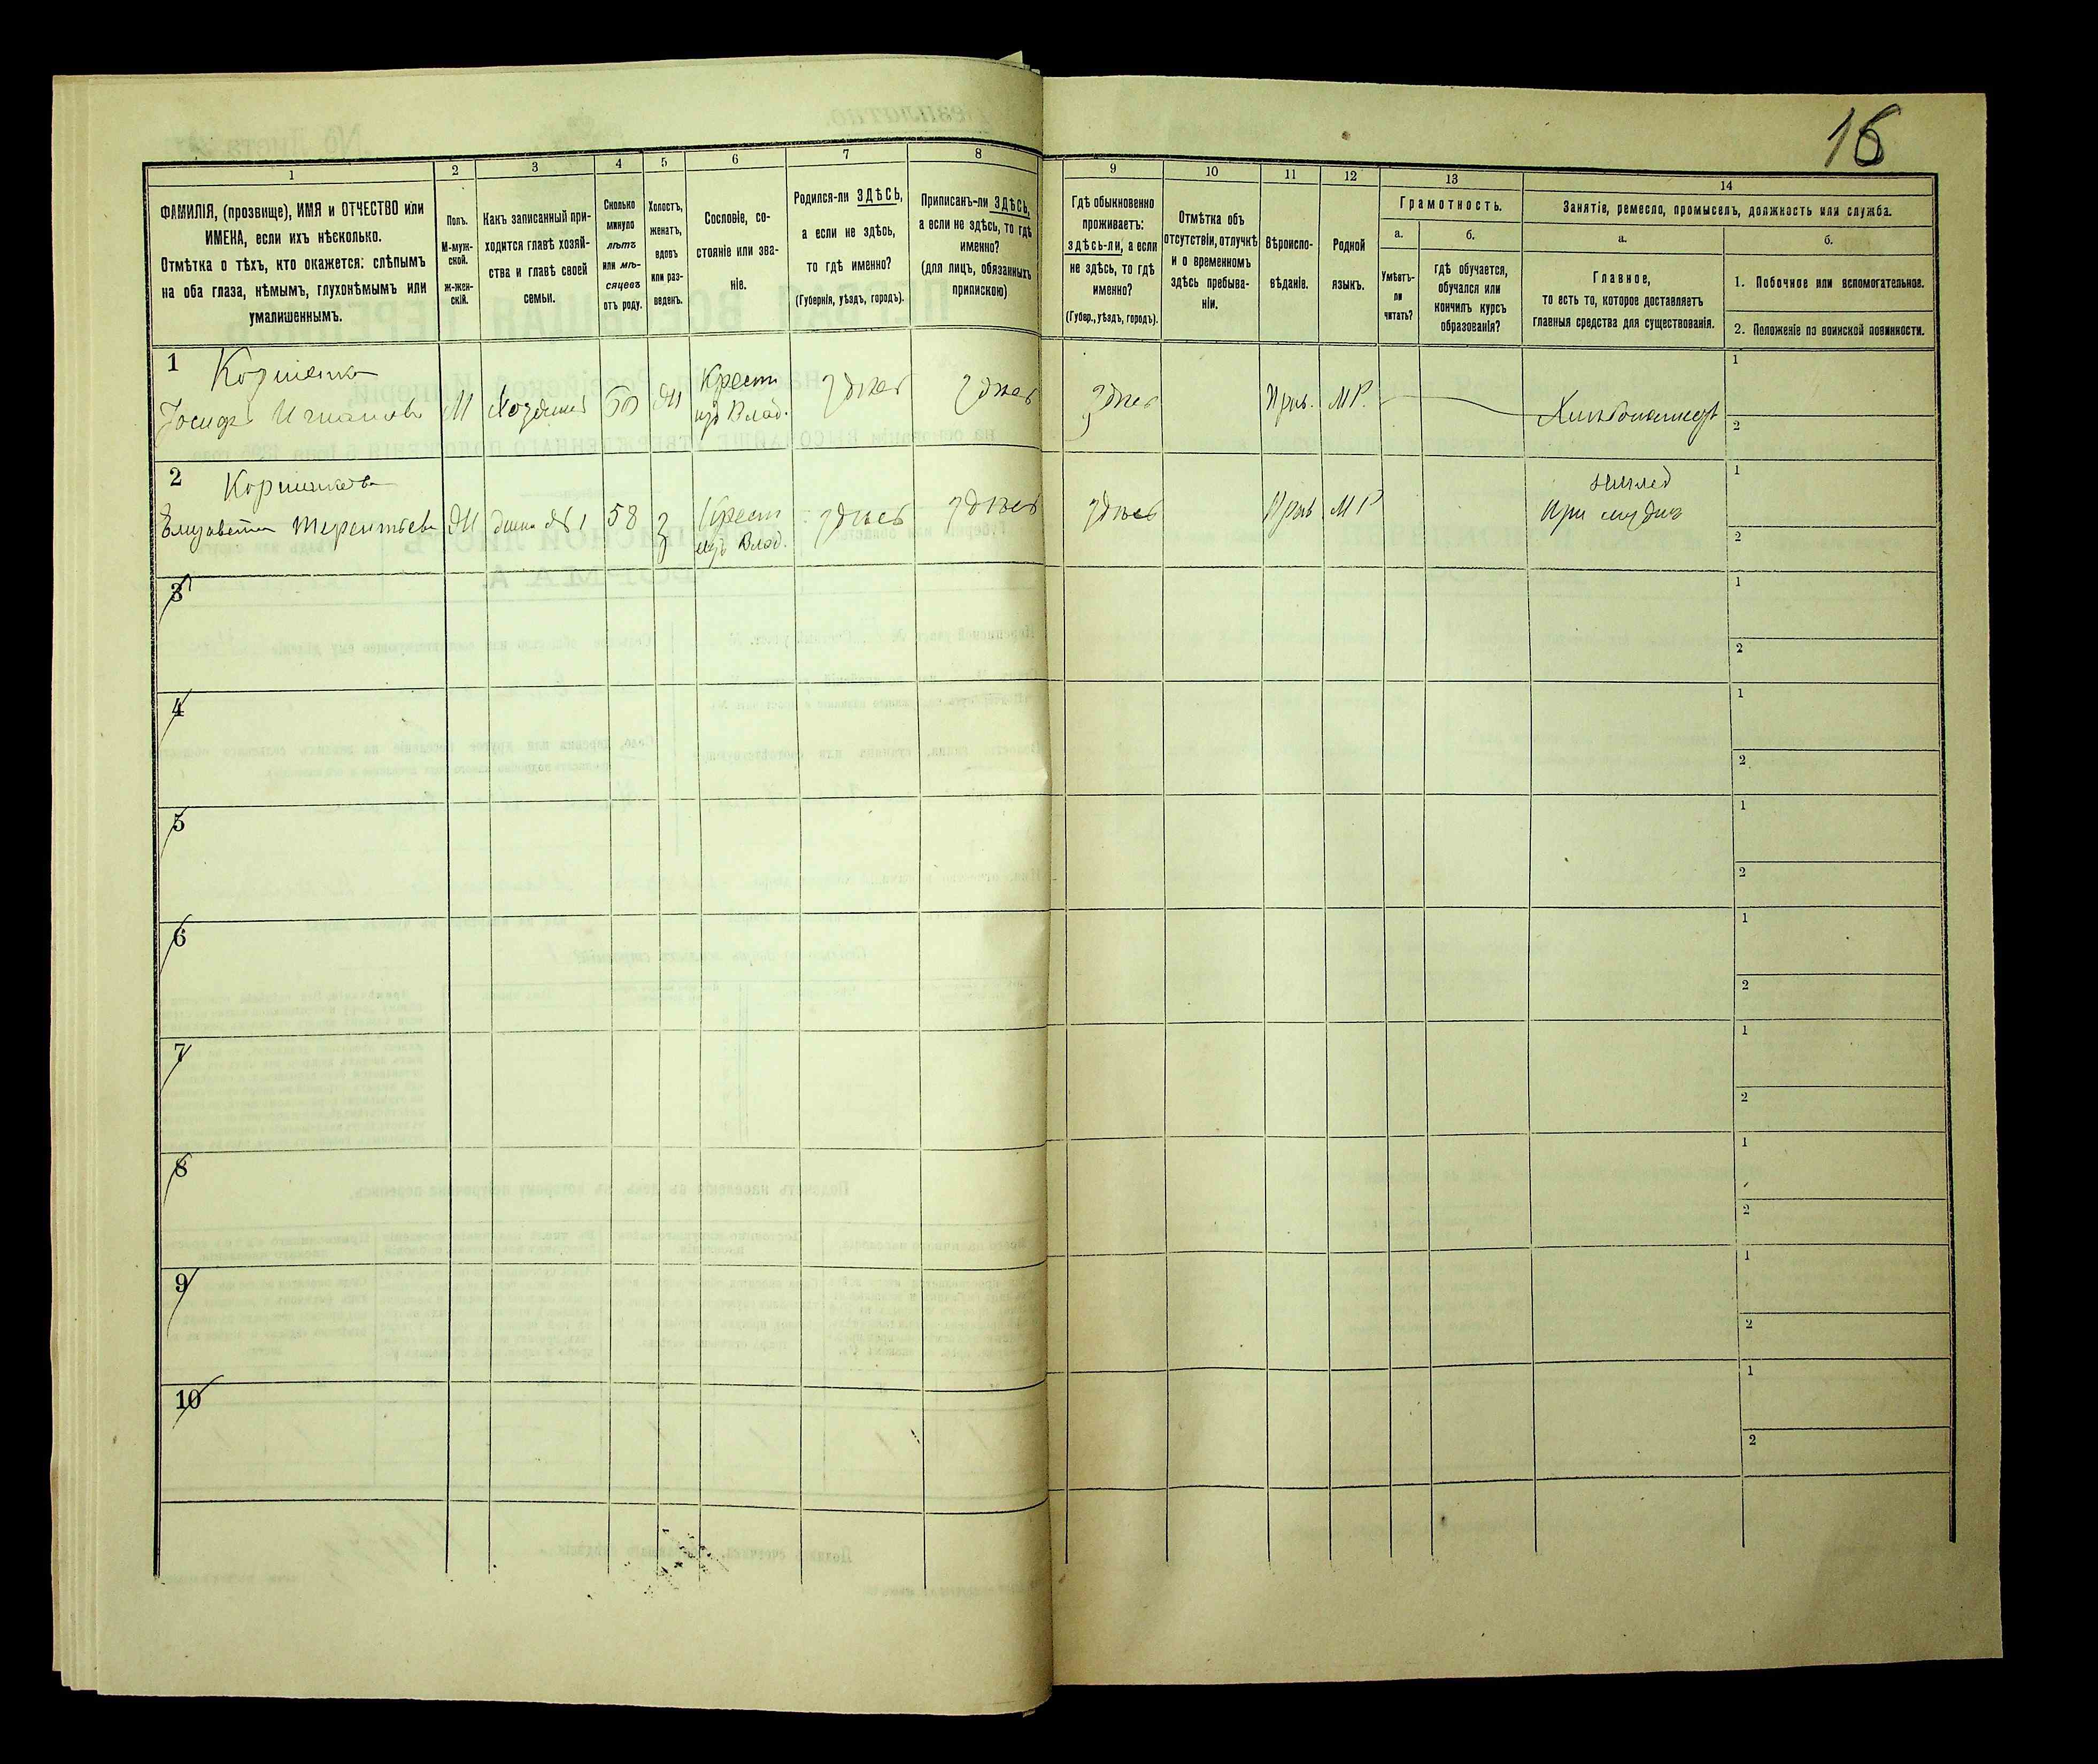 16
1
2
3
4
5
6
7
8
9
10
11
12
13
14
ФАМИЛІЯ, (прозвище), ИМЯ и ОТЧЕСТВО или
ИМЕНА, если ихъ нѣсколько.
Отмѣтка о тѣхъ, кто окажется: слѣпымъ
на оба глаза, нѣмымъ, глухонѣмымъ или
умалишеннымъ.
Полъ.
М-муж-
ской.
Ж-жен-
скій.
Какъ записанный при-
ходится главѣ хозяй-
ства и главѣ своей
семьи.
Сколько
минуло
лѣтъ
или мѣ-
сяцевъ
отъ роду.
Холостъ,
женатъ,
вдовъ
или раз-
веденъ.
Сословіе, со-
стояніе или зва-
ніе.
Родился-ли ЗДѢСЬ,
а если не здѣсь,
то гдѣ именно?
(Губернія, уѣздъ, городъ).
Приписанъ-ли ЗДѢСЬ,
а если не здѣсь, то гдѣ
именно?
(для лицъ, обязанныхъ
припискою)
Гдѣ обыкновенно
проживаетъ:
здѣсь-ли, а если
не здѣсь, то гдѣ
именно?
(Губер., уѣздъ, городъ).
Отмѣтка объ
отсутствіи, отлучкѣ
и о временномъ
здѣсь пребыва-
ніи.
Вѣроиспо-
вѣданіе.
Родной
языкъ.
Грамотность.
а.
Умѣетъ-
ли
читать?
б.
гдѣ обучается,
обучался или
кончилъ курсъ
образованія?
Занятіе, ремесло, промыселъ, должность или служба.
а.
Главное,
то есть то, которое доставляетъ
главныя средства для существованія.
б.
1. Побочное или вспомогательное.
2. Положеніе по воинской повинности.
1
М
Крест
изъ Влад.
здѣсь
здѣсь
здѣсь
Прав.
МР.
1
2
2
Елизавета Терентьева
58
Крест
изъ Влад.
здѣсь
здѣсь
здѣсь
Прав
МР
землед
При мужѣ
1
2
3
1
2
4
1
2
5
1
2
6
1
2
7
1
2
8
1
2
9
1
2
10
1
2